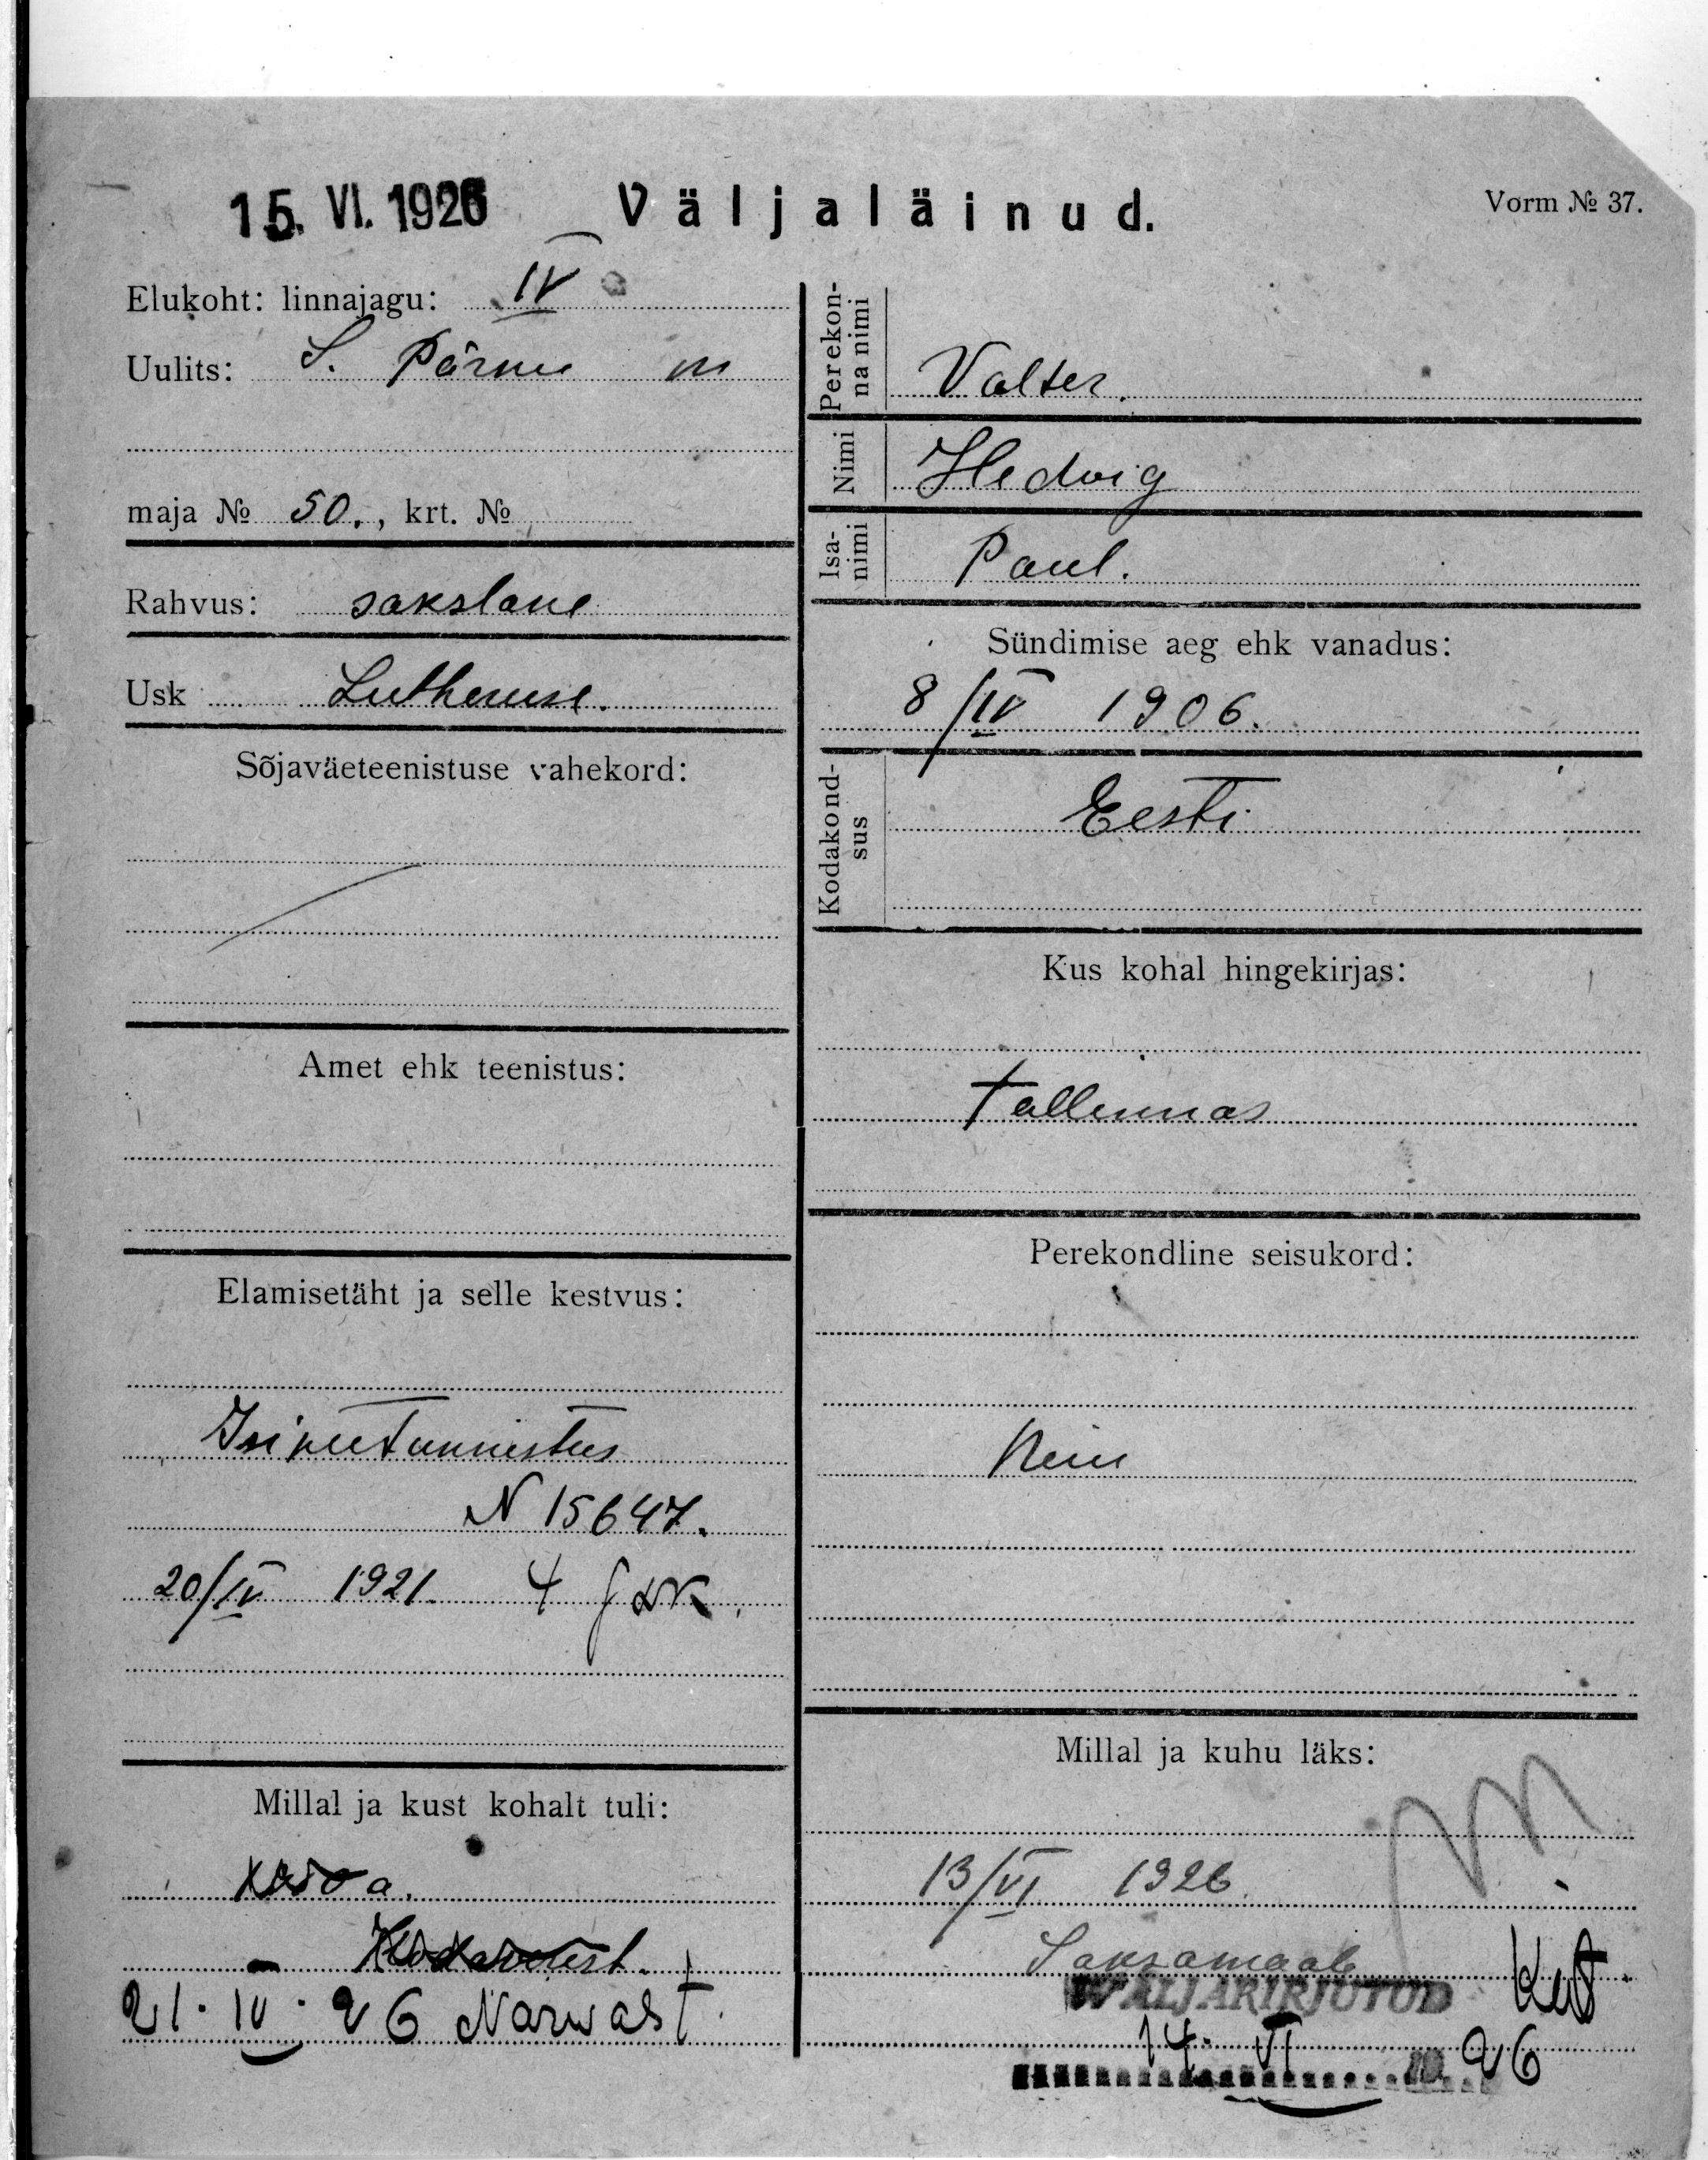 15. VI. 1926 Väljaläinud. Vorm № 37.
Elukoht: linnajagu: IV
Uulits: S. Pärnu m
maja № 50., krt. №
Rahvus: sakslane
Usk Lutheruse.
Sõjaväeteenistuse vahekord:
Amet ehk teenistus:
Elamisetäht ja selle kestvus:
Isikutunnistus
N 15647.
20/IV 1921. 4 J
Millal ja kust kohalt tuli:
21. IV. 26 Narwast.
Perekon-
na nimi
Valter.
Nimi
Hedvig
Isa-
nimi
Paul.
Sündimise aeg ehk vanadus:
8/IV 1906.
Kodakond-
sus
Eesti
Kus kohal hingekirjas:
Tallinnas
Perekondline seisukord:
Nein
Millal ja kuhu läks:
13/VI 1926
Saksamaale
WÄLJAKIRJUTUD
14. VI 19 26